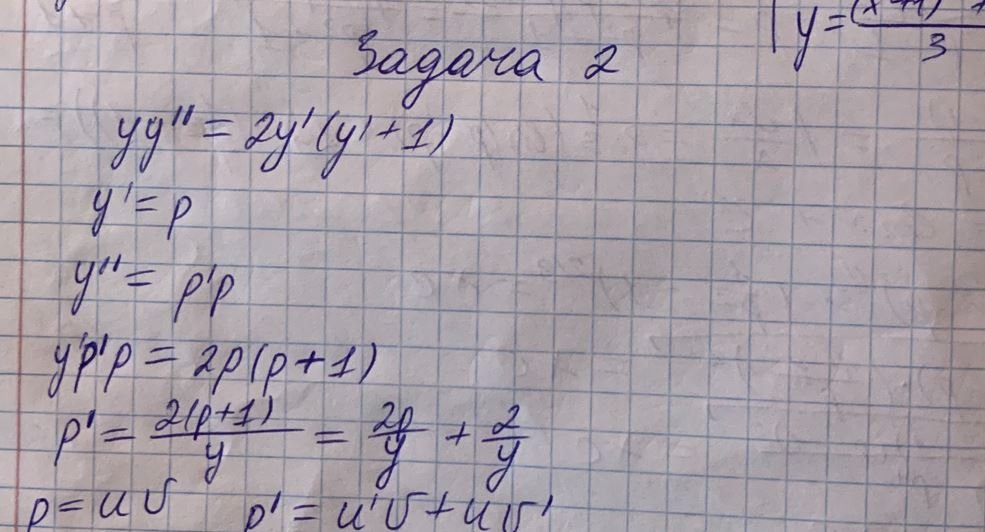 y = (x+1) / 3
Задача 2
yy'' = 2y'(y'+1)
y' = p
y'' = p'p
yp'p = 2p(p+1)
p' = 2(p+1)/y = 2p/y + 2/y
p = uv p' = u'v + uv'